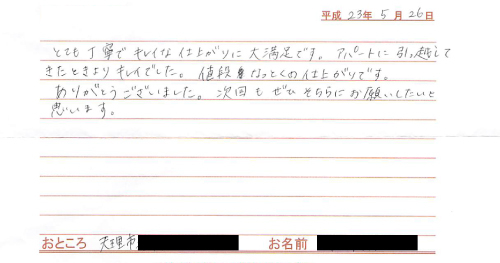 平成 23年 5月 26日
とても丁寧でキレイな仕上がりに大満足です。アパートに引っ越して
きたときよりキレイでした。値段もなっとくの仕上がりです。
ありがとうございました。次回もぜひそちらにお願いしたいと
思います。
おところ 天理市 お名前